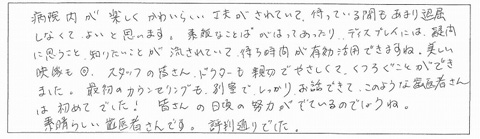 病院内が楽しくかわいらしい工夫がされていて、待っている間もあまり退屈
しなくてよいと思います。素敵なことばがはってあったり、ディスプレイには、疑問
に思うこと、知りたいことが流されていて、待ち時間が有効活用できますね。美しい
映像も◎。スタッフの皆さん、ドクターも親切でやさしくて、くつろぐことができ
ました。最初のカウンセリングでも、別室で、しっかりお話できて、このような歯医者さん
は初めてでした! 皆さんの日頃の努力がでているのでしょうね。
素晴らしい歯医者さんです。評判通りでした。